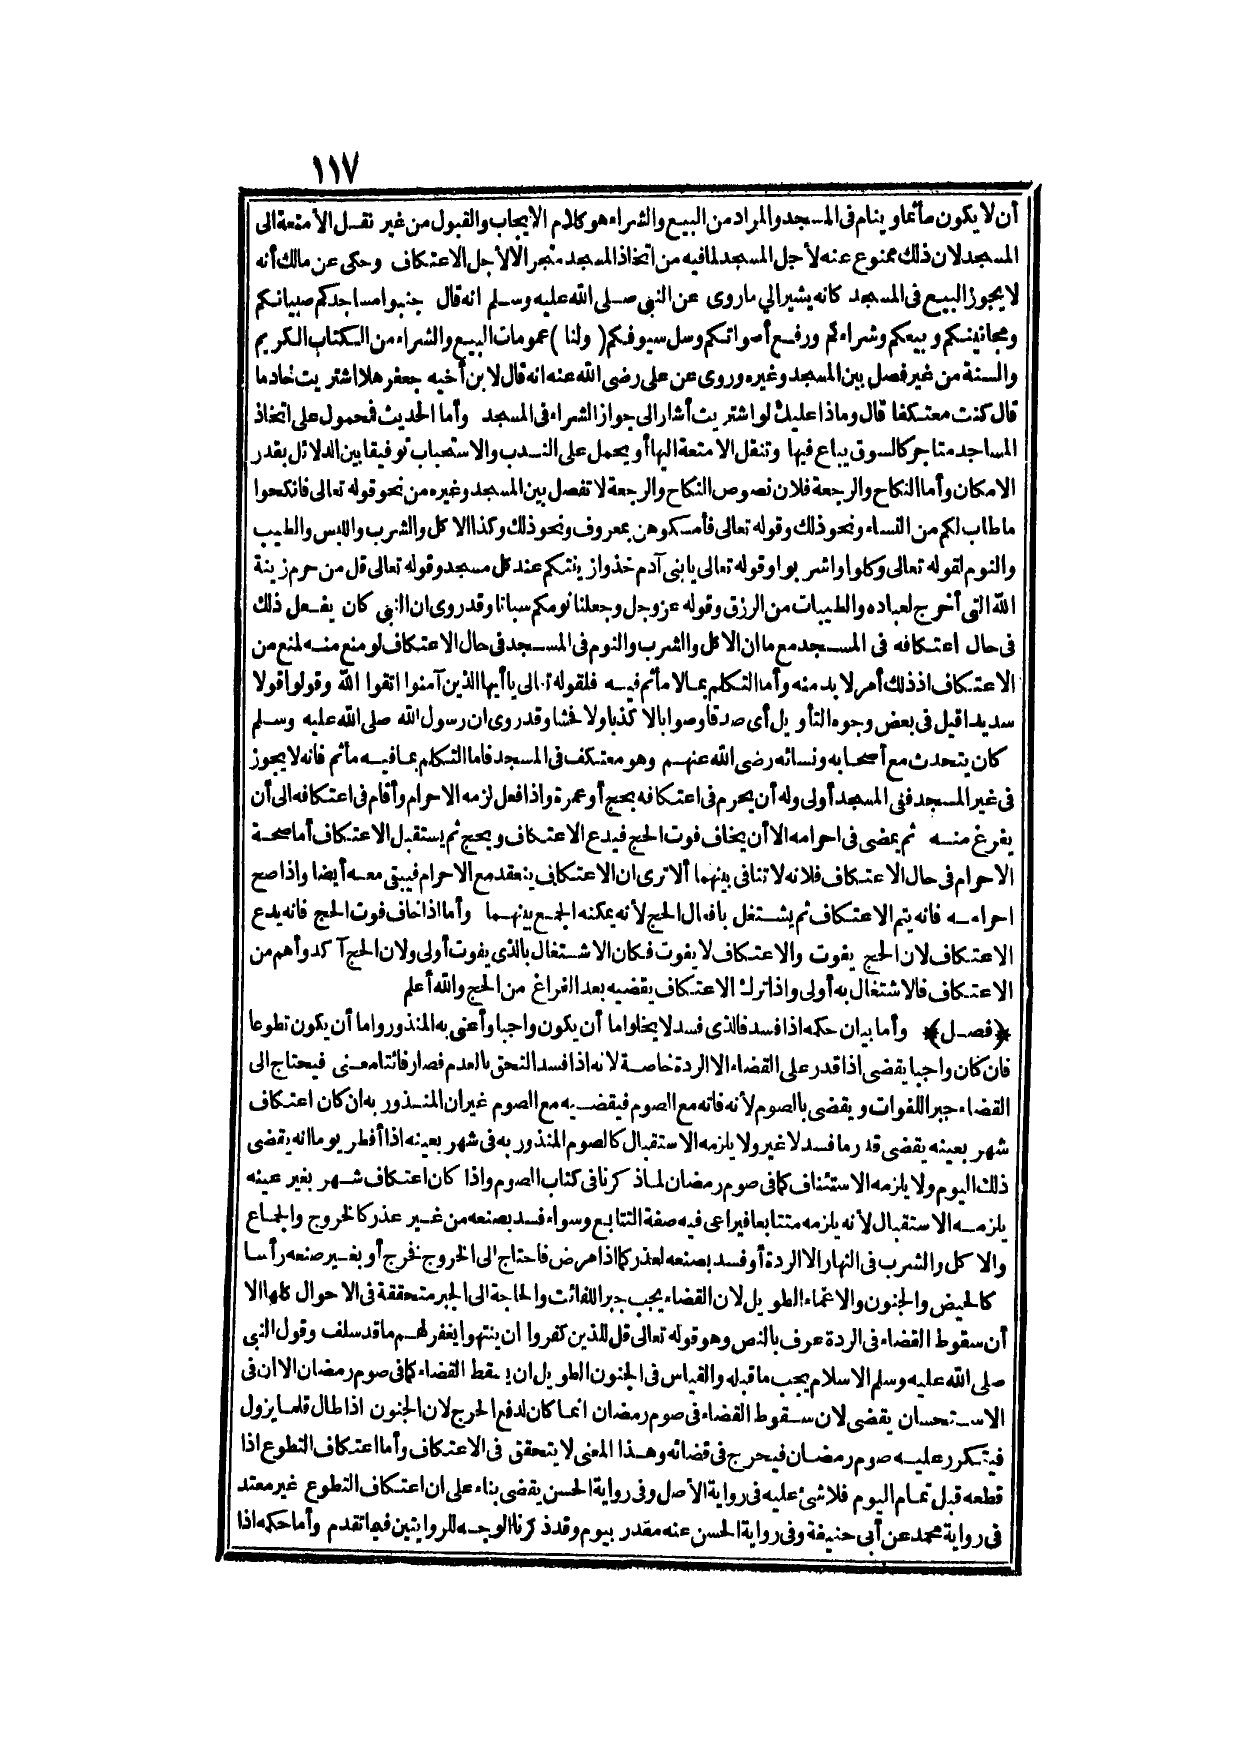 ١١٧
أن لا يكون مأثما وينام في المسجد والمراد من البيع والشراء هو كلام الايجاب والقبول من غير نقل الأمتعة الى
المسجد لان ذلك ممنوع عنه لأجل المسجد لما فيه من اتخاذ المسجد متجرا لا لأجل الاعتكاف وحكى عن مالك أنه
لا يجوز البيع في المسجد كانه يشير الي ما روى عن النبي صلى الله عليه وسلم انه قال جنبوا مساجدكم صبيانكم
ومجانينكم وبيعكم وشراءكم ورفع أصواتكم وسل سيوفكم (ولنا) عمومات البيع والشراء من الكتاب الكريم
والسنة من غير فصل بين المسجد وغيره وروى عن على رضى الله عنه انه قال لابن أخيه جعفر هلا اشتريت خادما
قال كنت معتكفا قال وماذا عليك لو اشتريت أشار الى جواز الشراء في المسجد وأما الحديث فمحمول على اتخاذ
المساجد متاجر كالسوق يباع فيها وتنقل الامتعة اليها أو يحمل على الندب والاستحباب توفيقا بين الدلائل بقدر
الامكان وأما النكاح والرجعة فلان نصوص النكاح والرجعة لا تفصل بين المسجد وغيره من نحو قوله تعالى فانكحوا
ما طاب لكم من النساء ونحو ذلك وقوله تعالى فأمسكوهن بمعروف ونحو ذلك وكذا الاكل والشرب واللبس والطيب
والنوم لقوله تعالى وكلوا واشربوا وقوله تعالى يا بنى آدم خذوا زينتكم عند كل مسجد وقوله تعالى قل من حرم زينة
الله التى أخرج لعباده والطيبات من الرزق وقوله عز وجل وجعلنا نومكم سباتا وقد روى ان النبي كان يفعل ذلك
في حال اعتكافه في المسجد مع ما ان الاكل والشرب والنوم في المسجد في حال الاعتكاف لو منع منه لمنع من
الاعتكاف اذ ذلك أمر لا بد منه وأما التكلم بما لا مأثم فيه فلقوله تعالى يا أيها الذين آمنوا اتقوا الله وقولوا قولا
سديدا قيل في بعض وجوه التأويل أى صدقا وصوابا لا كذبا ولا فحشا وقد روى ان رسول الله صلى الله عليه وسلم
كان يتحدث مع أصحابه ونسائه رضى الله عنهم وهو معتكف في المسجد فاما التكلم بما فيه مأثم فانه لا يجوز
في غير المسجد ففى المسجد أولى وله أن يحرم في اعتكافه بحج أو عمرة واذا فعل لزمه الاحرام وأقام في اعتكافه الى أن
يفرغ منه ثم يمضى في احرامه الا أن يخاف فوت الحج فيدع الاعتكاف ويحج ثم يستقبل الاعتكاف أما صحة
الاحرام في حال الاعتكاف فلانه لا تنافى بينهما ألا ترى ان الاعتكاف ينعقد مع الاحرام فيبقى معه أيضا واذا صح
احرامه فانه يتم الاعتكاف ثم يشتغل بافعال الحج لأنه يمكنه الجمع بينهما وأما اذا خاف فوت الحج فانه يدع
الاعتكاف لان الحج يفوت والاعتكاف لا يفوت فكان الاشتغال بالذى يفوت أولى ولان الحج آكد وأهم من
الاعتكاف فالاشتغال به أولى واذا ترك الاعتكاف يقضيه بعد الفراغ من الحج والله أعلم
﴿فصل﴾ وأما بيان حكمه اذا فسد فالذى فسد لا يخلو اما أن يكون واجبا وأعنى به المنذور واما أن يكون تطوعا
فان كان واجبا يقضى اذا قدر على القضاء الا الردة خاصة لانه اذا فسد التحق بالعدم فصار فائتا معنى فيحتاج الى
القضاء جبرا للفوات ويقضى بالصوم لأنه فاته مع الصوم فيقضيه مع الصوم غير ان المنذور به ان كان اعتكاف
شهر بعينه يقضى قدر ما فسد لا غير ولا يلزمه الاستقبال كالصوم المنذور به في شهر بعينه اذا أفطر يوما انه يقضى
ذلك اليوم ولا يلزمه الاستئناف كما في صوم رمضان لما ذكرنا في كتاب الصوم واذا كان اعتكاف شهر بغير عينه
يلزمه الاستقبال لأنه يلزمه متتابعا فيراعى فيه صفة التتابع وسواء فسد بصنعه من غير عذر كالخروج والجماع
والاكل والشرب في النهار الا الردة أو فسد بصنعه لعذر كما اذا مرض فاحتاج الى الخروج فخرج أو بغير صنعه رأسا
كالحيض والجنون والاغماء الطويل لان القضاء يجب جبرا للفائت والحاجة الى الجبر متحققة في الاحوال كلها الا
أن سقوط القضاء في الردة عرف بالنص وهو قوله تعالى قل للذين كفروا ان ينتهوا يغفر لهم ما قد سلف وقول النبي
صلى الله عليه وسلم الاسلام يجب ما قبله والقياس في الجنون الطويل ان يسقط القضاء كما في صوم رمضان الا ان في
الاستحسان يقضى لان سقوط القضاء في صوم رمضان انما كان لدفع الحرج لان الجنون اذا طال قلما يزول
فيتكرر عليه صوم رمضان فيحرج في قضائه وهذا المعنى لا يتحقق في الاعتكاف وأما اعتكاف التطوع اذا
قطعه قبل تمام اليوم فلا شئ عليه في رواية الأصل وفى رواية الحسن يقضى بناء على ان اعتكاف التطوع غير معتد
في رواية محمد عن أبى حنيفة وفى رواية الحسن عنه مقدر بيوم وقد ذكرنا الوجه للروايتين فيما تقدم وأما حكمه اذا